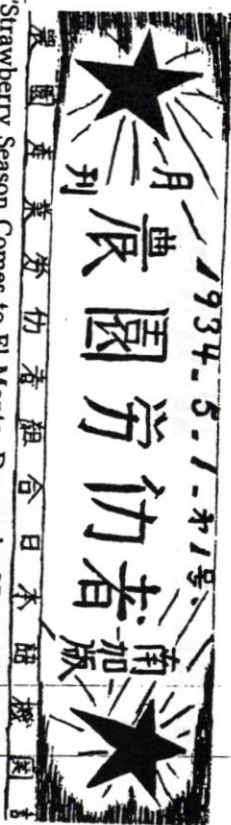 1934-5-1-才1号
月刊
農園労仂者
南加版
農園産業労仂者組合日本語機関
"Strawberry Season Comes to El Monte